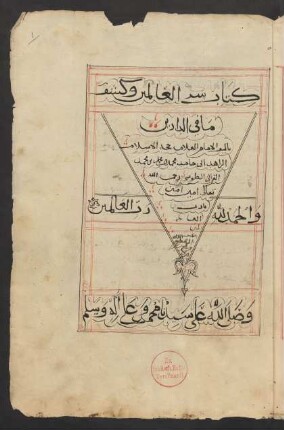 كتاب سر العالمين وكشف
ما في الدارين
الامام العلامه حجة الاسلام
الزاهد ابى حامد محمد بن محمد بن محمد
الغزالي الطوسي رحمه الله
تعالى امين امين
والحمد لله رب العالمين
وصل الله على سيدنا محمد وعلى اله وسلم